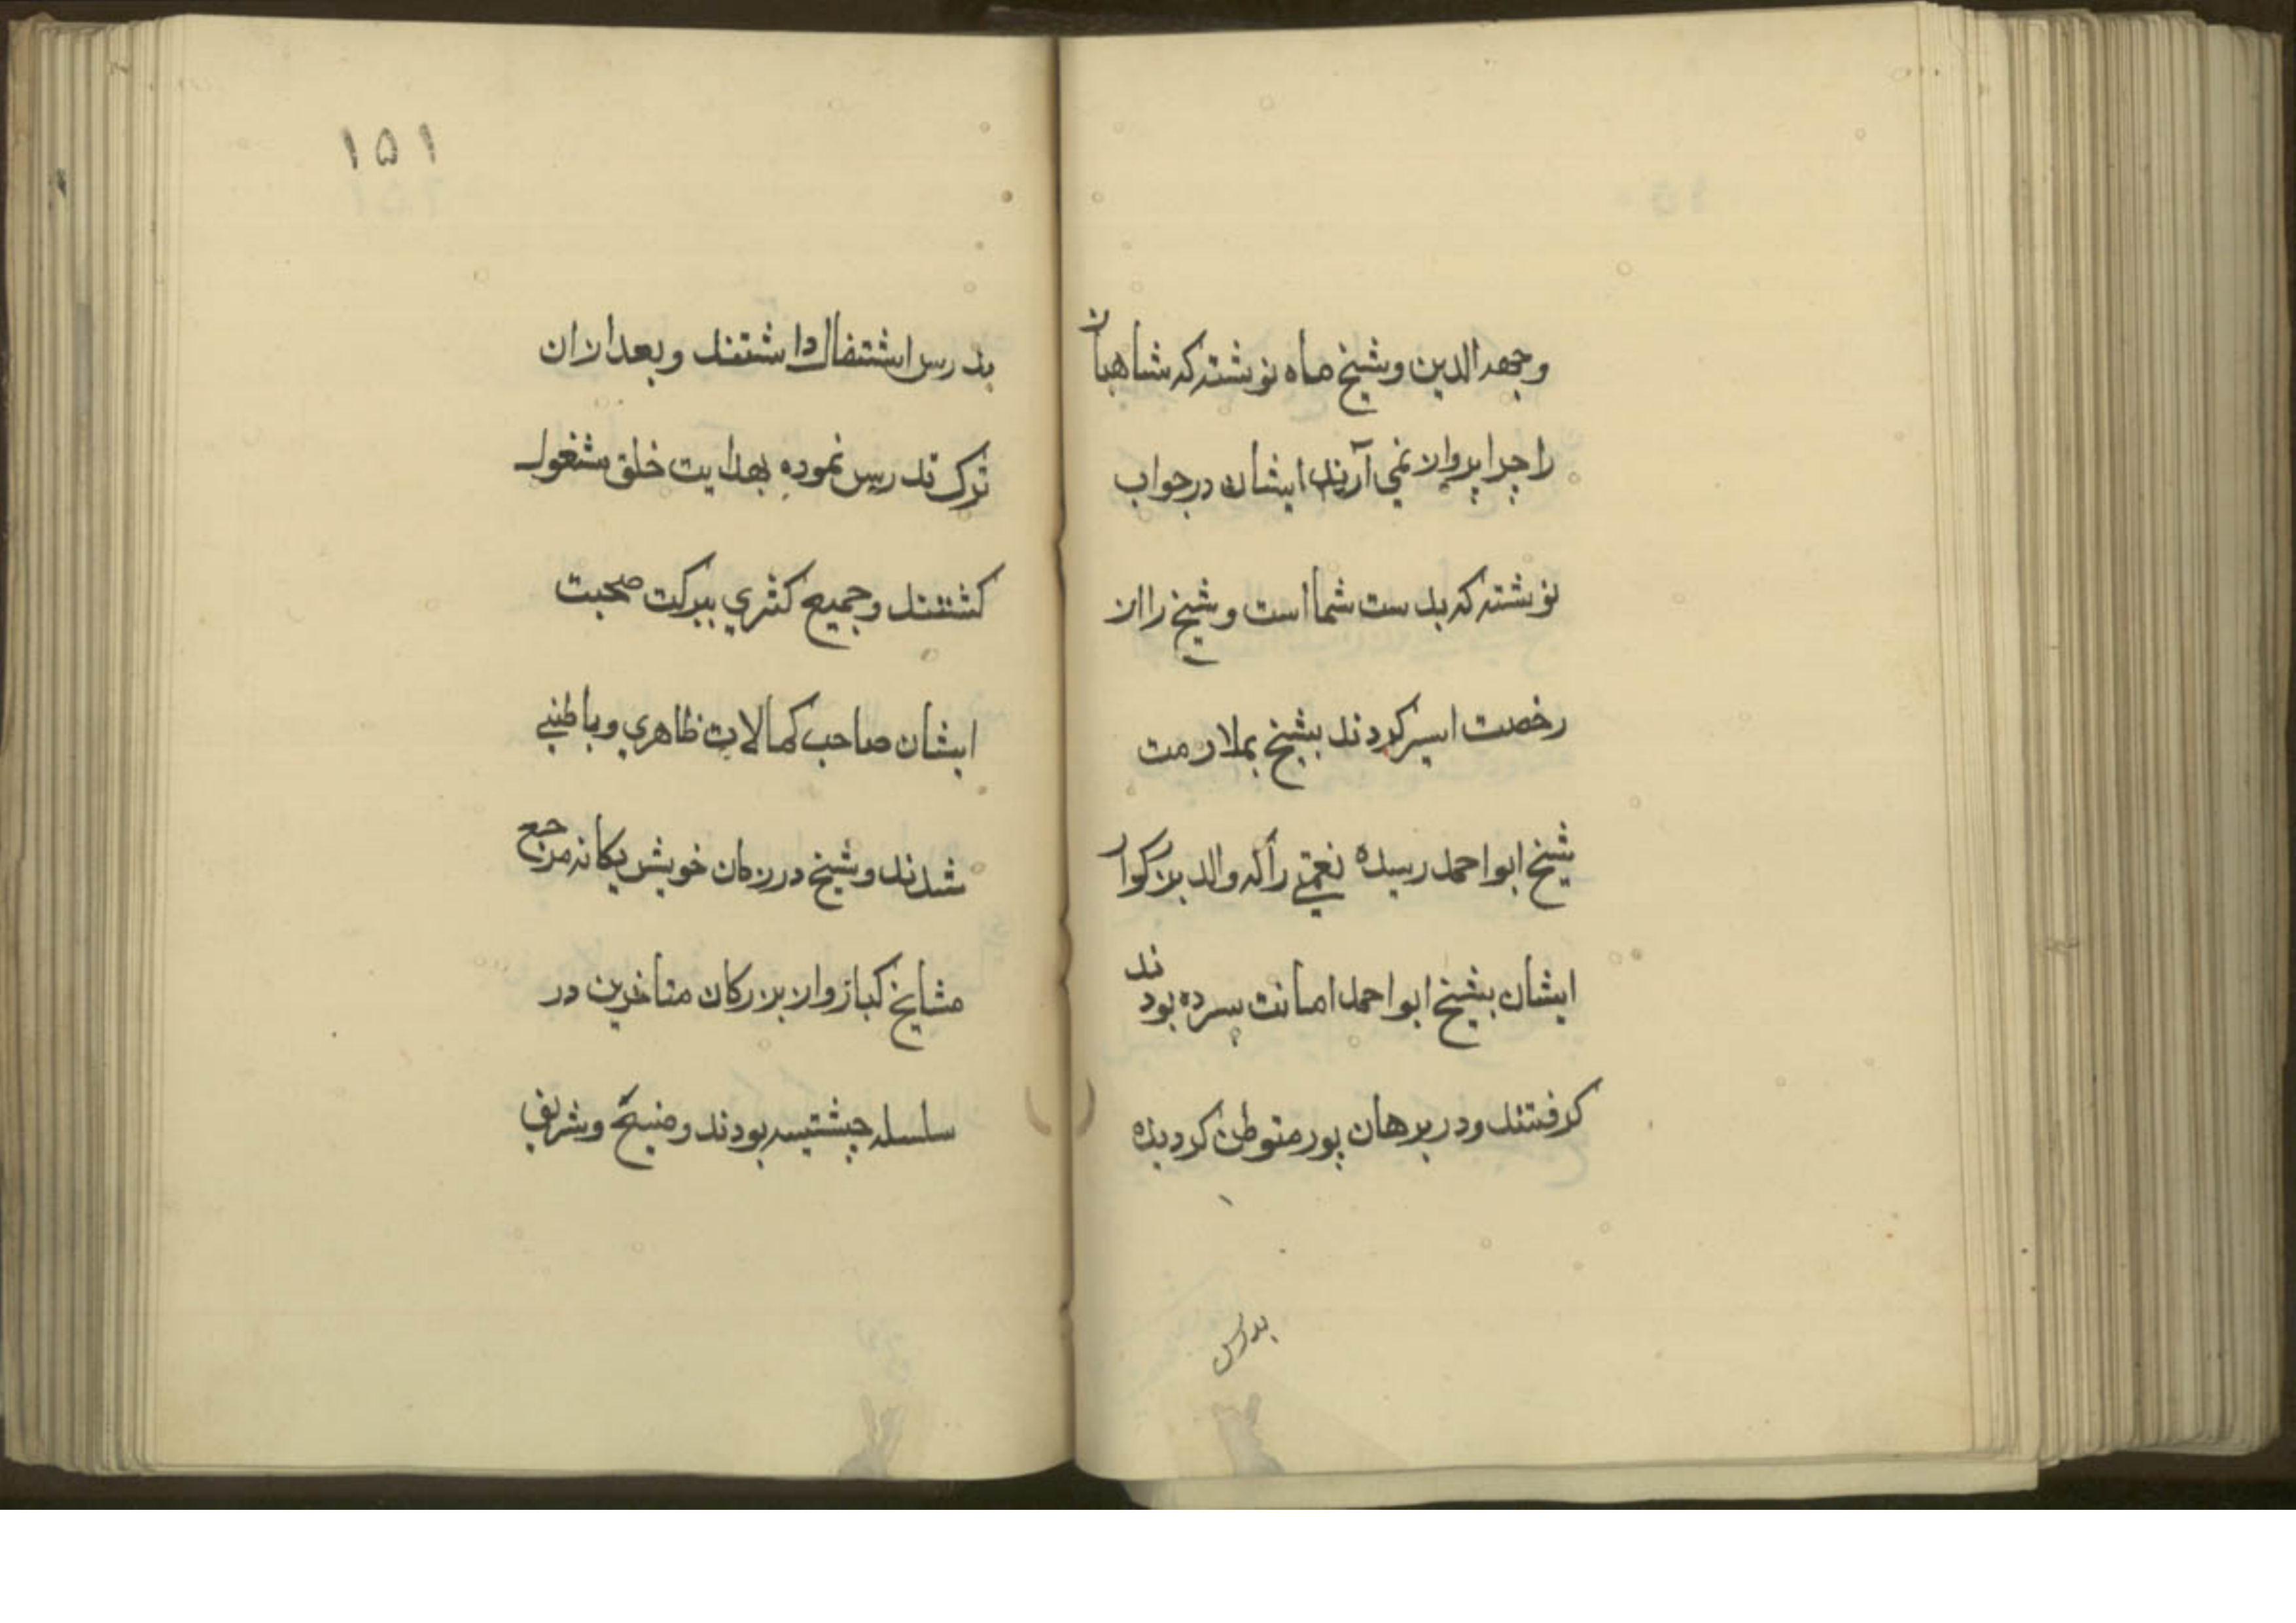 وجهه الدین وشیخ ماه نوشته که شاهبان
را چرا پروان نمی آرند ایشان در جواب
نوشته که بدست شما است وشیخ را از
رخصت اسیر کردند بشیخ بملازمت
شیخ ابو احمد رسیده نعمتی را که والد بزرکوار
ایشان بشیخ ابو احمد امانت سپرده بودند
کرفتند ودر برهان پور متوطن کردیده
بدرس
۱۵۱
بدرس اشتغال داشتند وبعد ازان
ترک تدریس نموده بهدایت خلق مشغول
کشتند وجمیع کثری ببرکت صحبت
ایشان صاحب کمالات ظاهری وباطنی
شدند وشیخ در زمان خویش یکانه مرجع
مشایخ کبار واز بزرکان متاخرین در
سلسله چشتیه بودند وضیع وشریف